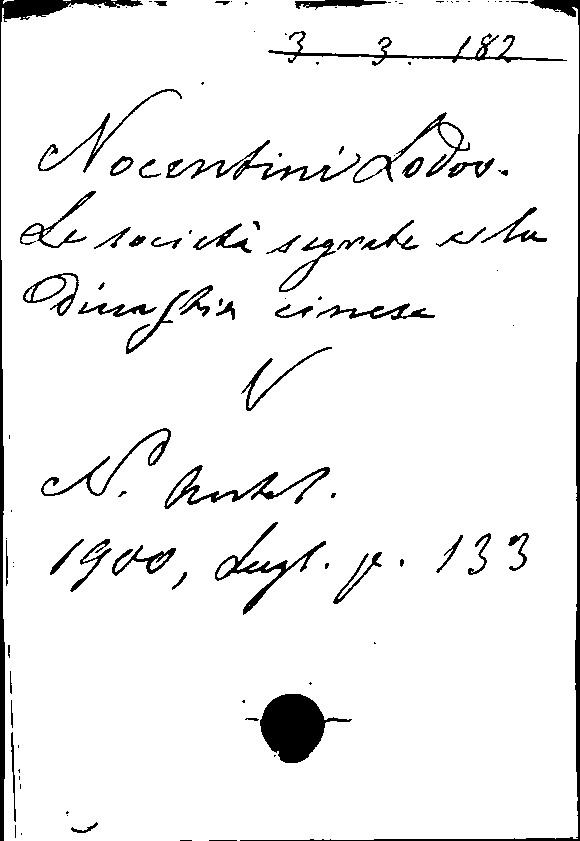 3. 3. 182
Nocentini Lodov.
Le società segrete e la
Dinastia cinese
V
N. Antol.
1900, Lugl. p. 133